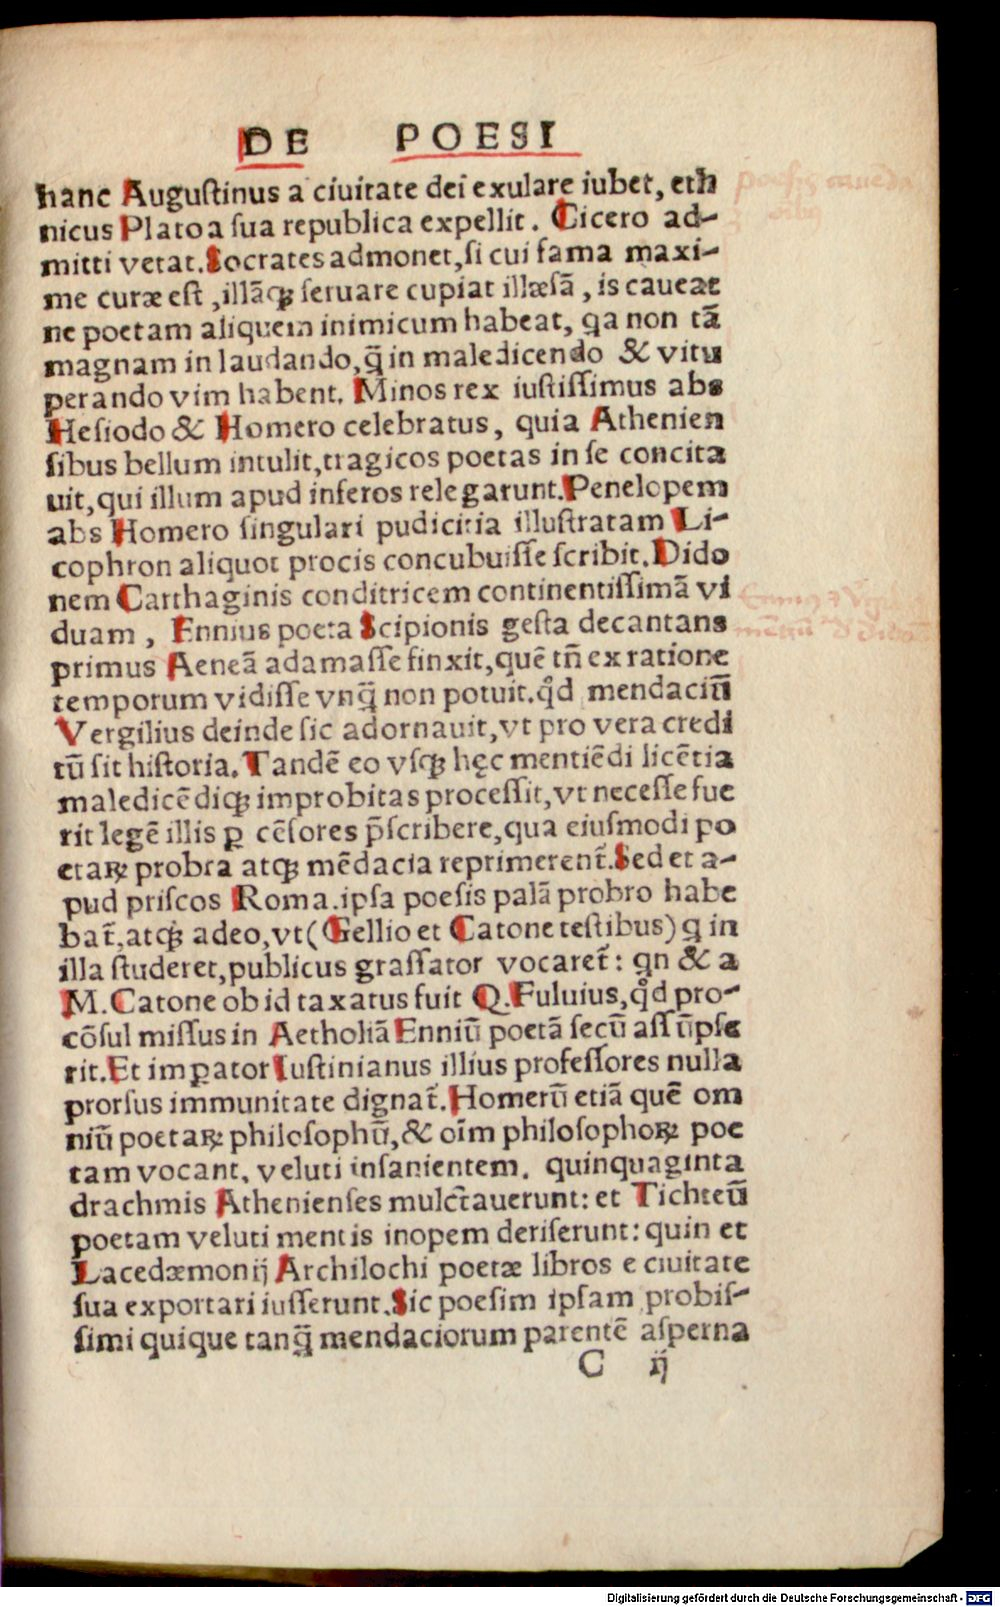 DE POESI
hanc Augustinus a ciuitate dei exulare iubet, eth
nicus Plato a sua republica expellit. Cicero ad-
mitti vetat. Socrates admonet, si cui fama maxi-
me curæ est, illāqꝫ seruare cupiat illæsā, is caueat
ne poetam aliquem inimicum habeat, qa non tā
magnam in laudando, q̄ in maledicendo & vitu
perando vim habent. Minos rex iustissimus abs
Hesiodo & Homero celebratus, quia Athenien
sibus bellum intulit, tragicos poetas in se concita
uit, qui illum apud inferos relegarunt. Penelopem
abs Homero singulari pudicitia illustratam Li-
cophron aliquot procis concubuisse scribit. Dido
nem Carthaginis conditricem continentissimā vi
duam, Ennius poeta Scipionis gesta decantans
primus Aeneā adamasse finxit, quē tn̄ ex ratione
temporum vidisse vnq̄ non potuit. qd̓ mendaciū
Vergilius deinde sic adornauit, vt pro vera credi
tū sit historia. Tandē eo vsqꝫ hęc mentiēdi licētia
maledicēdiqꝫ improbitas processit, vt necesse fue
rit legē illis ꝑ cēsores p̄scribere, qua eiusmodi po
etaꝝ probra atqꝫ mēdacia reprimerent᷑. Sed et a-
pud priscos Roma. ipsa poesis palā probro habe
bat᷑, atqꝫ adeo, vt (Gellio et Catone testibus) q in
illa studeret, publicus grassator vocaret᷑: qn & a
M. Catone ob id taxatus fuit Q. Fuluius, qd̓ pro-
cōsul missus in Aetholiā Enniū poetā secū assūpse
rit. Et imꝑator Iustinianus illius professores nulla
prorsus immunitate dignat᷑. Homerū etiā quē om
niū poetaꝝ philosophū, & oīm philosophoꝝ poe
tam vocant, veluti insanientem, quinquaginta
drachmis Athenienses mulctauerunt: et Tichteū
poetam veluti mentis inopem deriserunt: quin et
Lacedæmonij Archilochi poetæ libros e ciuitate
sua exportari iusserunt. Sic poesim ipsam probis-
simi quique tanq̄ mendaciorum parentē asperna
C ij
Digitalisierung gefördert durch die Deutsche Forschungsgemeinschaft - DFG